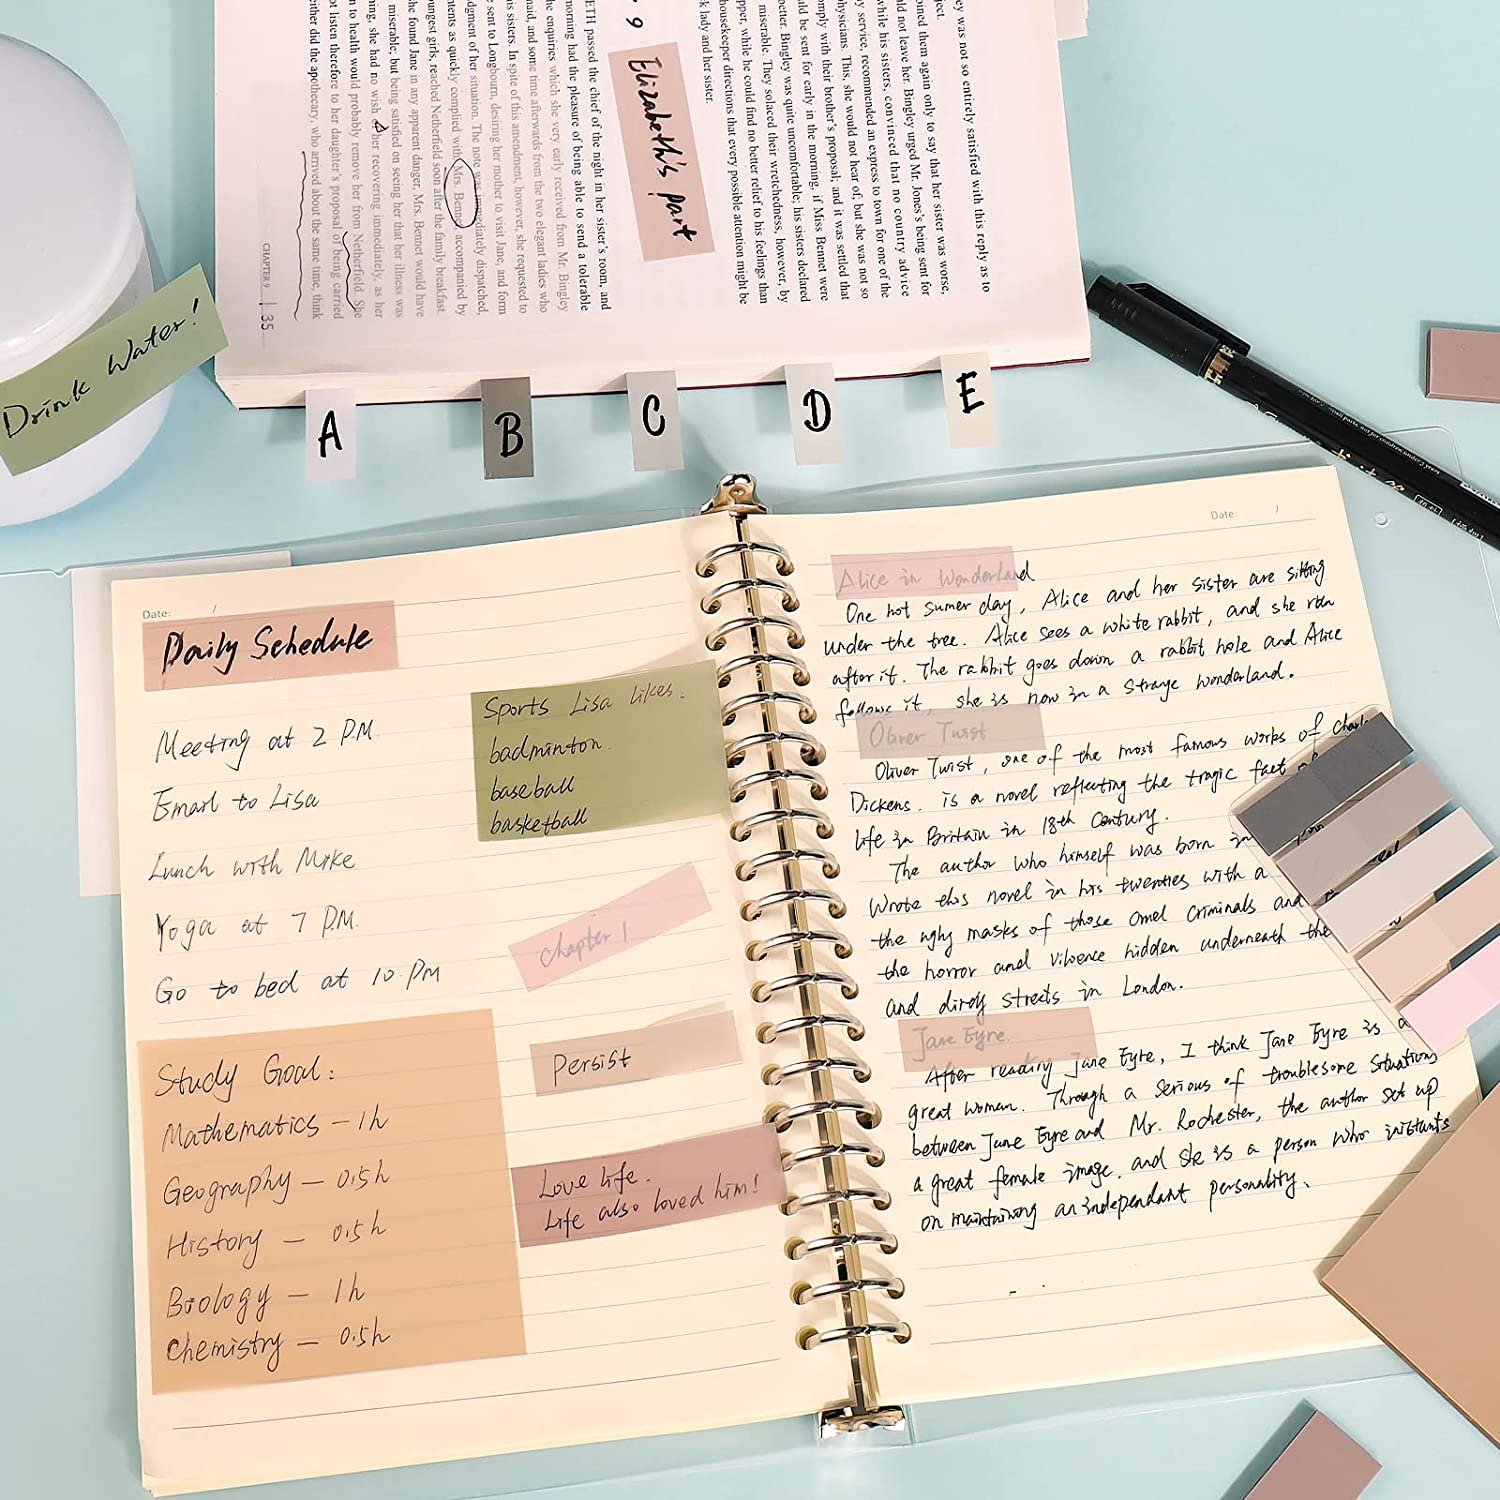 ey was not so entirely satisfied with this reply as to
ject.
oined them again only to say that her sister was worse,
ould not leave her. Bingley urged Mr. Jones's being sent for
while his sisters, convinced that no country advice
y service, recommended an express to town for one of the
physicians. This, she would not hear of; but she was not so
omply with their brother's proposal; and it was settled that
ould be sent for early in the morning, if Miss Bennet were
better. Bingley was quite uncomfortable; his sisters declared
miserable. They solaced their wretchedness, however, by
upper, while he could find no better relief to his feelings than
housekeeper directions that every possible attention might be
k lady and her sister.
Elizabeth's part
9
ETH passed the chief of the night in her sister's room, and
morning had the pleasure of being able to send a tolerable
he enquiries which she very early received from Mr. Bingley
maid, and some time afterwards from the two elegant ladies who
his sisters. In spite of this amendment, however, she requested to
e sent to Longbourn, desiring her mother to visit Jane, and form
dgment of her situation. The note was immediately dispatched,
ntents as quickly complied with. Mrs. Bennet, accompanied by
oungest girls, reached Netherfield soon after the family breakfast.
he found Jane in any apparent danger, Mrs. Bennet would have
miserable; but being satisfied on seeing her that her illness was
ning, she had no wish of her recovering immediately, as her
n to health would probably remove her from Netherfield. She
ot listen therefore to her daughter's proposal of being carried
either did the apothecary, who arrived about the same time, think
CHAPTER 9 | 35
Drink Water!
A
B
C
D
E
Date: /
Daily Schedule
Meeting at 2 P.M.
Email to Lisa
Lunch with Mike
Yoga at 7 P.M.
Go to bed at 10 P.M
Sports Lisa likes:
badminton.
baseball
basketball
Chapter 1
Persist
Love life.
Life also loved him!
Study Goal:
Mathematics - 1h
Geography - 0.5h
History - 0.5h
Biology - 1h
Chemistry - 0.5h
Date: /
Alice in Wonderland
One hot sumer day, Alice and her sister are sitting
under the tree. Alice sees a white rabbit, and she ran
after it. The rabbit goes down a rabbit hole and Alice
follows it, she is now in a strange wonderland.
Oliver Twist
Oliver Twist, one of the most famous works of Charles
Dickens. is a novel reflecting the tragic fact of
life in Britain in 18th Century.
The author who himself was born in
Wrote this novel in his twenties with a
the ugly masks of those cruel criminals and
the horror and viloence hidden underneath the
and dirdy streets in London.
Jane Eyre
After reading Jane Eyre, I think Jane Eyre is a
great women. Through a serious of troublesome situations
between Jane Eyre and Mr. Rochester, the author set up
a great female image. and she is a person who insistants
on maintaining an independant personality.